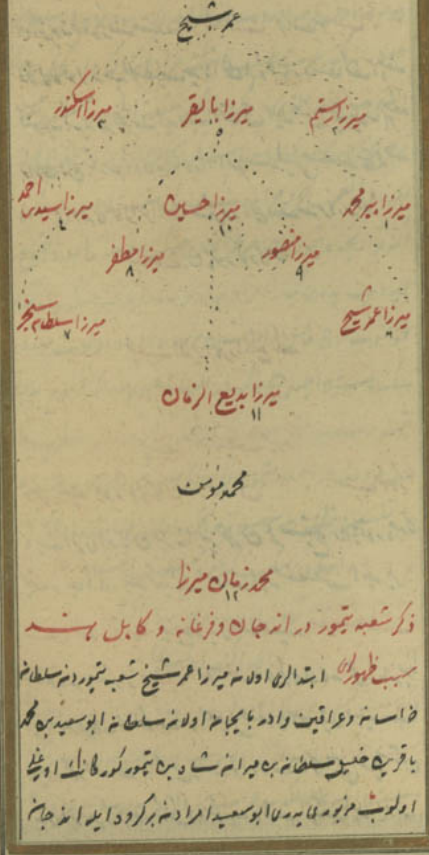 عمر شیخ
میرزا رستم میرزا بایقرا میرزا اسکندر
میرزا پیر محمد میرزا حسین میرزا سیدی احمد
۱ ۱۰ ٤
میرزا منصور میرزا مظفر
۹ ۸
میرزا عمر شیخ میرزا سلطان سنجر
۷
میرزا بدیع الزمان
۱۱
محمد مؤمن
محمد زمان میرزا
۱۲
ذکر شعبه تیمور در اندجان و فرغانه و کابل و هند
سبب ظهوری ابتدالری اولان میرزا عمر شیخ شعب تیموردن سلطان
خراسان و عراقین و اذربایجان اولان سلطان ابوسعید بن محمد
باقر بن خلیل سلطان بن میران شاه بن تیمور کورکانک اوغلی
اولوب مزبوری پدری ابوسعید امرادن برکرود ایله اندجان